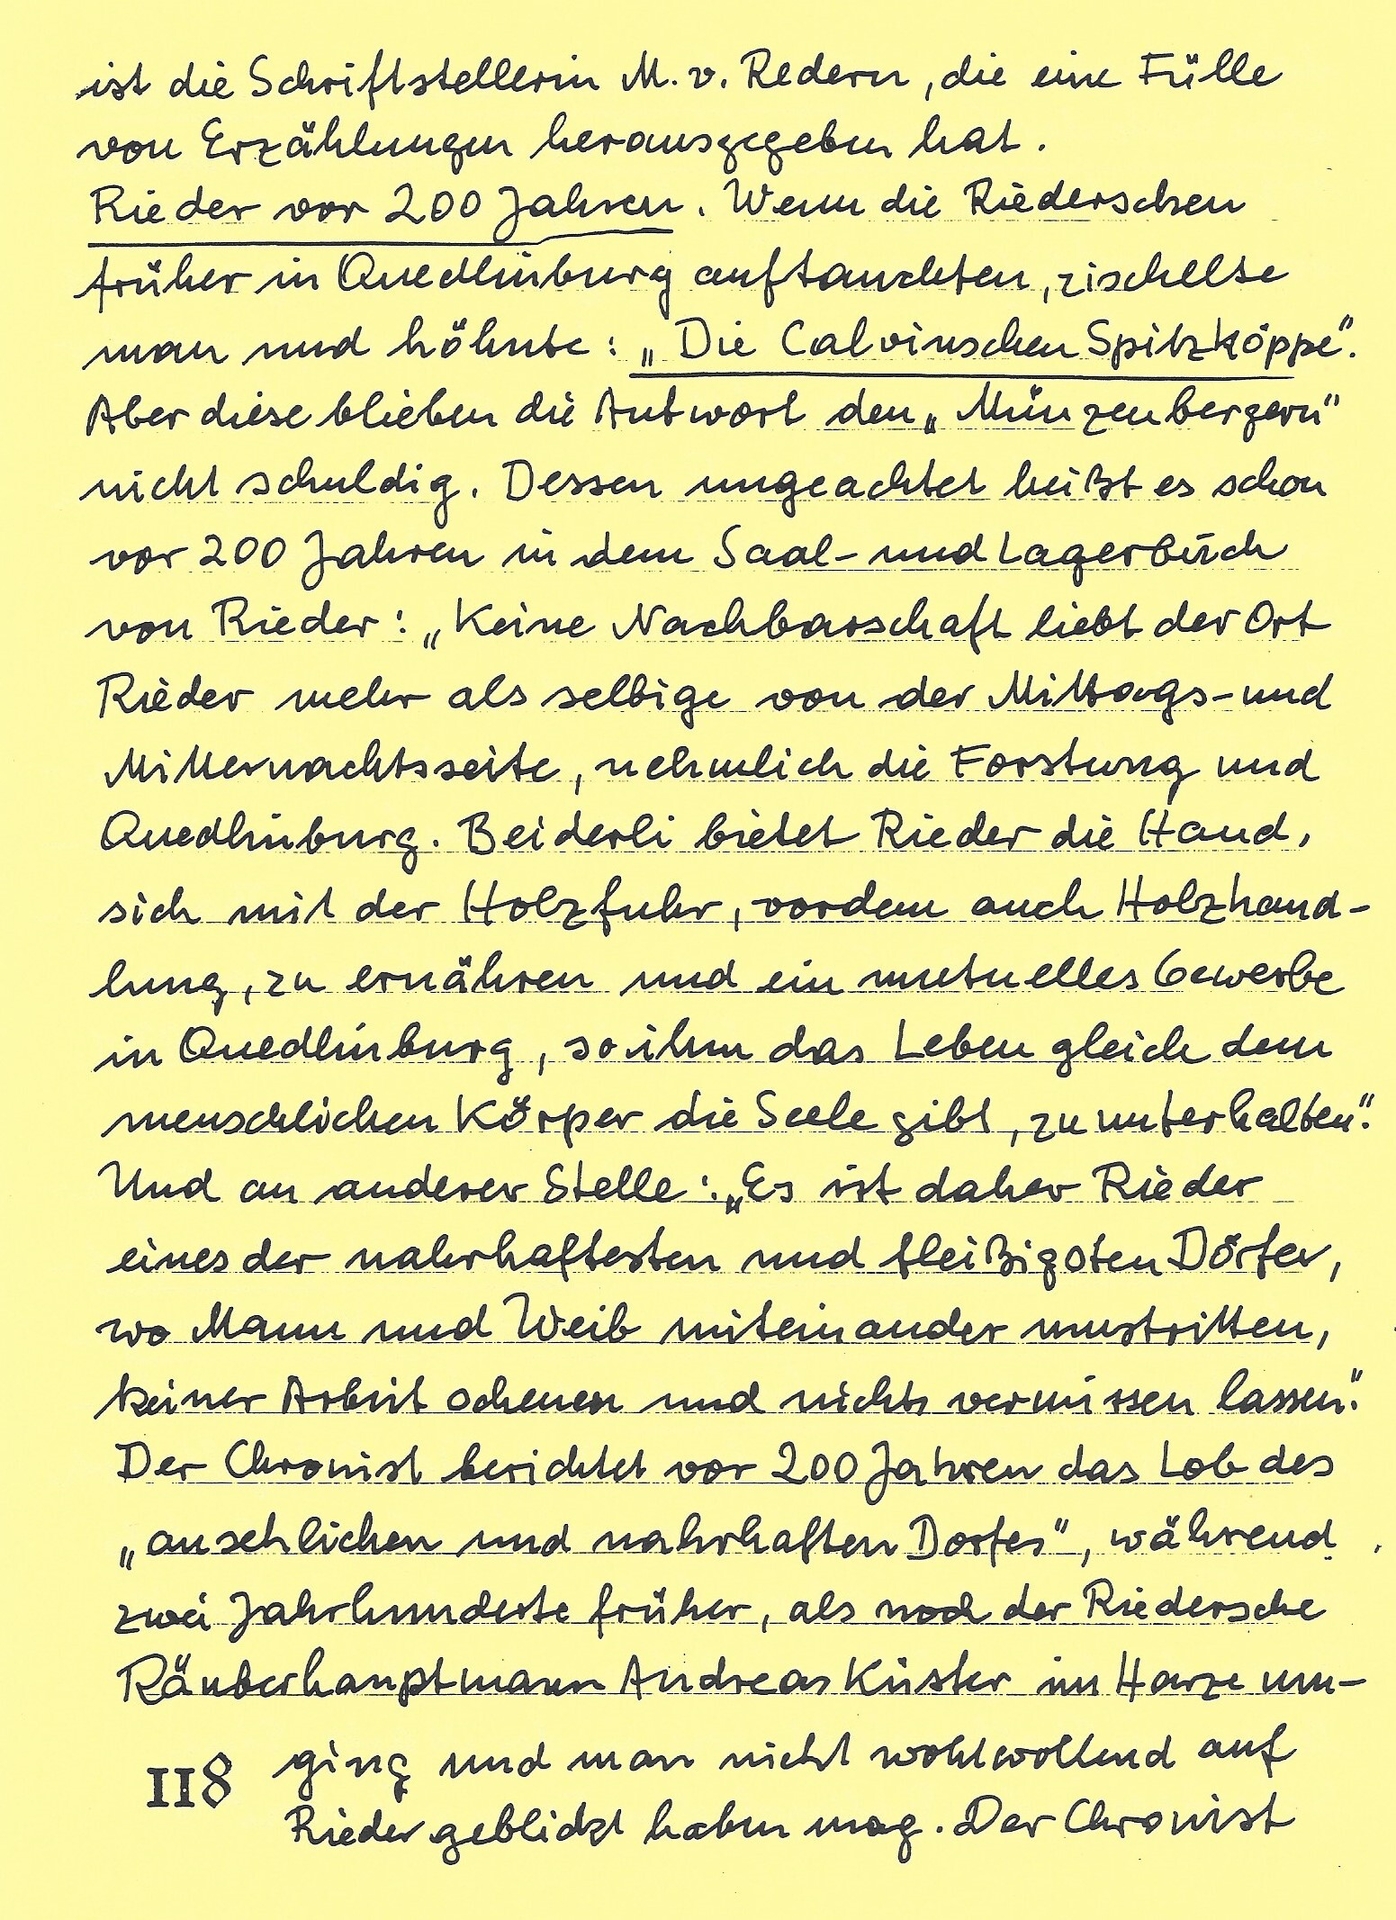 ist die Schriftstellerin M. v. Redern, die eine Fülle
von Erzählungen herausgegeben hat.
Rieder vor 200 Jahren. Wenn die Riederschen
früher in Quedlinburg auftauchten, zischelte
man und höhnte: „Die Calvinschen Spitzköppe".
Aber diese blieben die Antwort den „Münzenbergern"
nicht schuldig. Dessen ungeachtet heißt es schon
vor 200 Jahren in dem Saal- und Lagerbuch
von Rieder: „Keine Nachbarschaft liebt der Ort
Rieder mehr als selbige von der Mittags- und
Mitternachtsseite, nehmlich die Forstung und
Quedlinburg. Beiderli bietet Rieder die Hand,
sich mit der Holzfuhr, vordem auch Holzhand-
lung, zu ernähren und ein mutuelles Gewerbe
in Quedlinburg, so ihm das Leben gleich dem
menschlichen Körper die Seele gibt, zu unterhalten".
Und an anderer Stelle: „Es ist daher Rieder
eines der nahrhaftesten und fleißigsten Dörfer,
wo Mann und Weib miteinander umstritten,
keiner Arbeit scheuen und nichts vermissen lassen".
Der Chronist berichtet vor 200 Jahren das Lob des
„ansehlichen und nahrhaften Dorfes", während
zwei Jahrhunderte früher, als noch der Riedersche
Räuberhauptmann Andreas Küster im Harze um-
ging und man nicht wohlwollend auf
Rieder geblickt haben mag. Der Chronist
118